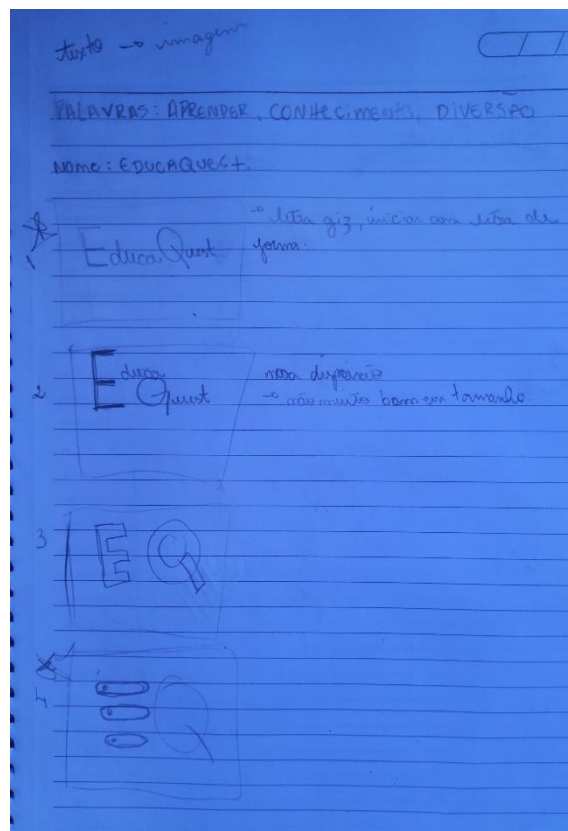 texto → imagem
PALAVRAS: APRENDER, CONHECIMENTO, DIVERSÃO
NOME: EDUCAQUEST.
→ letra giz, iniciar com letra de
forma.
1
EducaQuest
2
Educa
Quest
nova disposição
→ não muito bom em tamanho.
3
E Q
4
Q